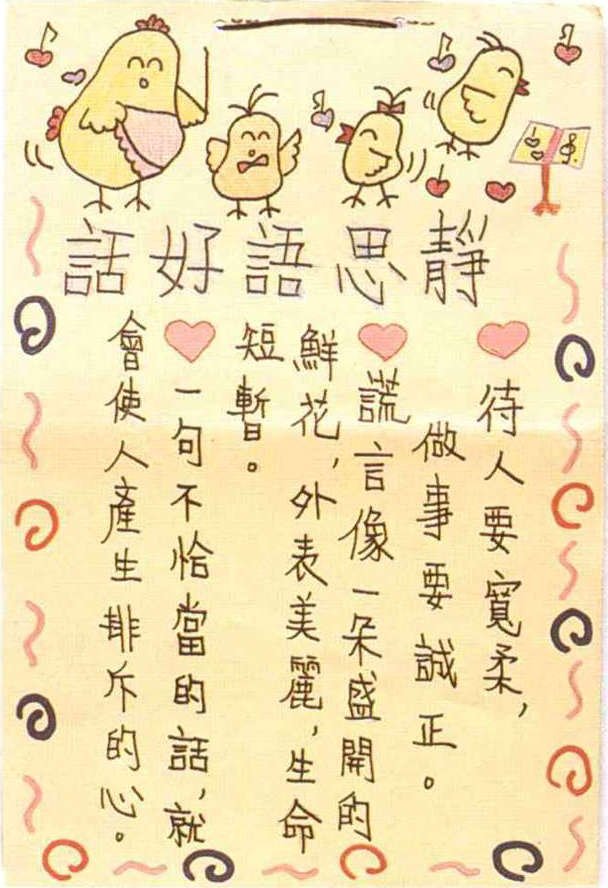 靜思語好話
待人要寬柔，
做事要誠正。
謊言像一朵盛開的
鮮花，外表美麗，生命
短暫。
一句不恰當的話，就
會使人產生排斥的心。